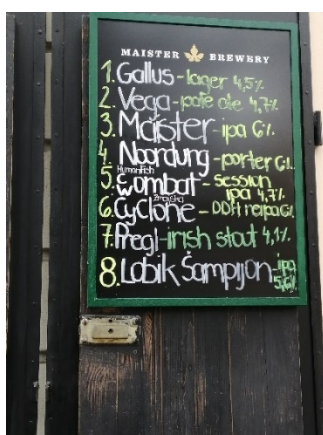 MAISTER BREWERY
1. Gallus - lager 4,5%
2. Vega - pale ale 4,7%
3. Maister - ipa 6%
4. Noordung - porter 6%
HumanFish
5. Wombat - session
ipa 4,7%
Zmajska
6. Cyclone - DDH neipa 6%
7. Pregl - irish stout 4,1%
8. Lobik Šampijon - ipa
5,6%